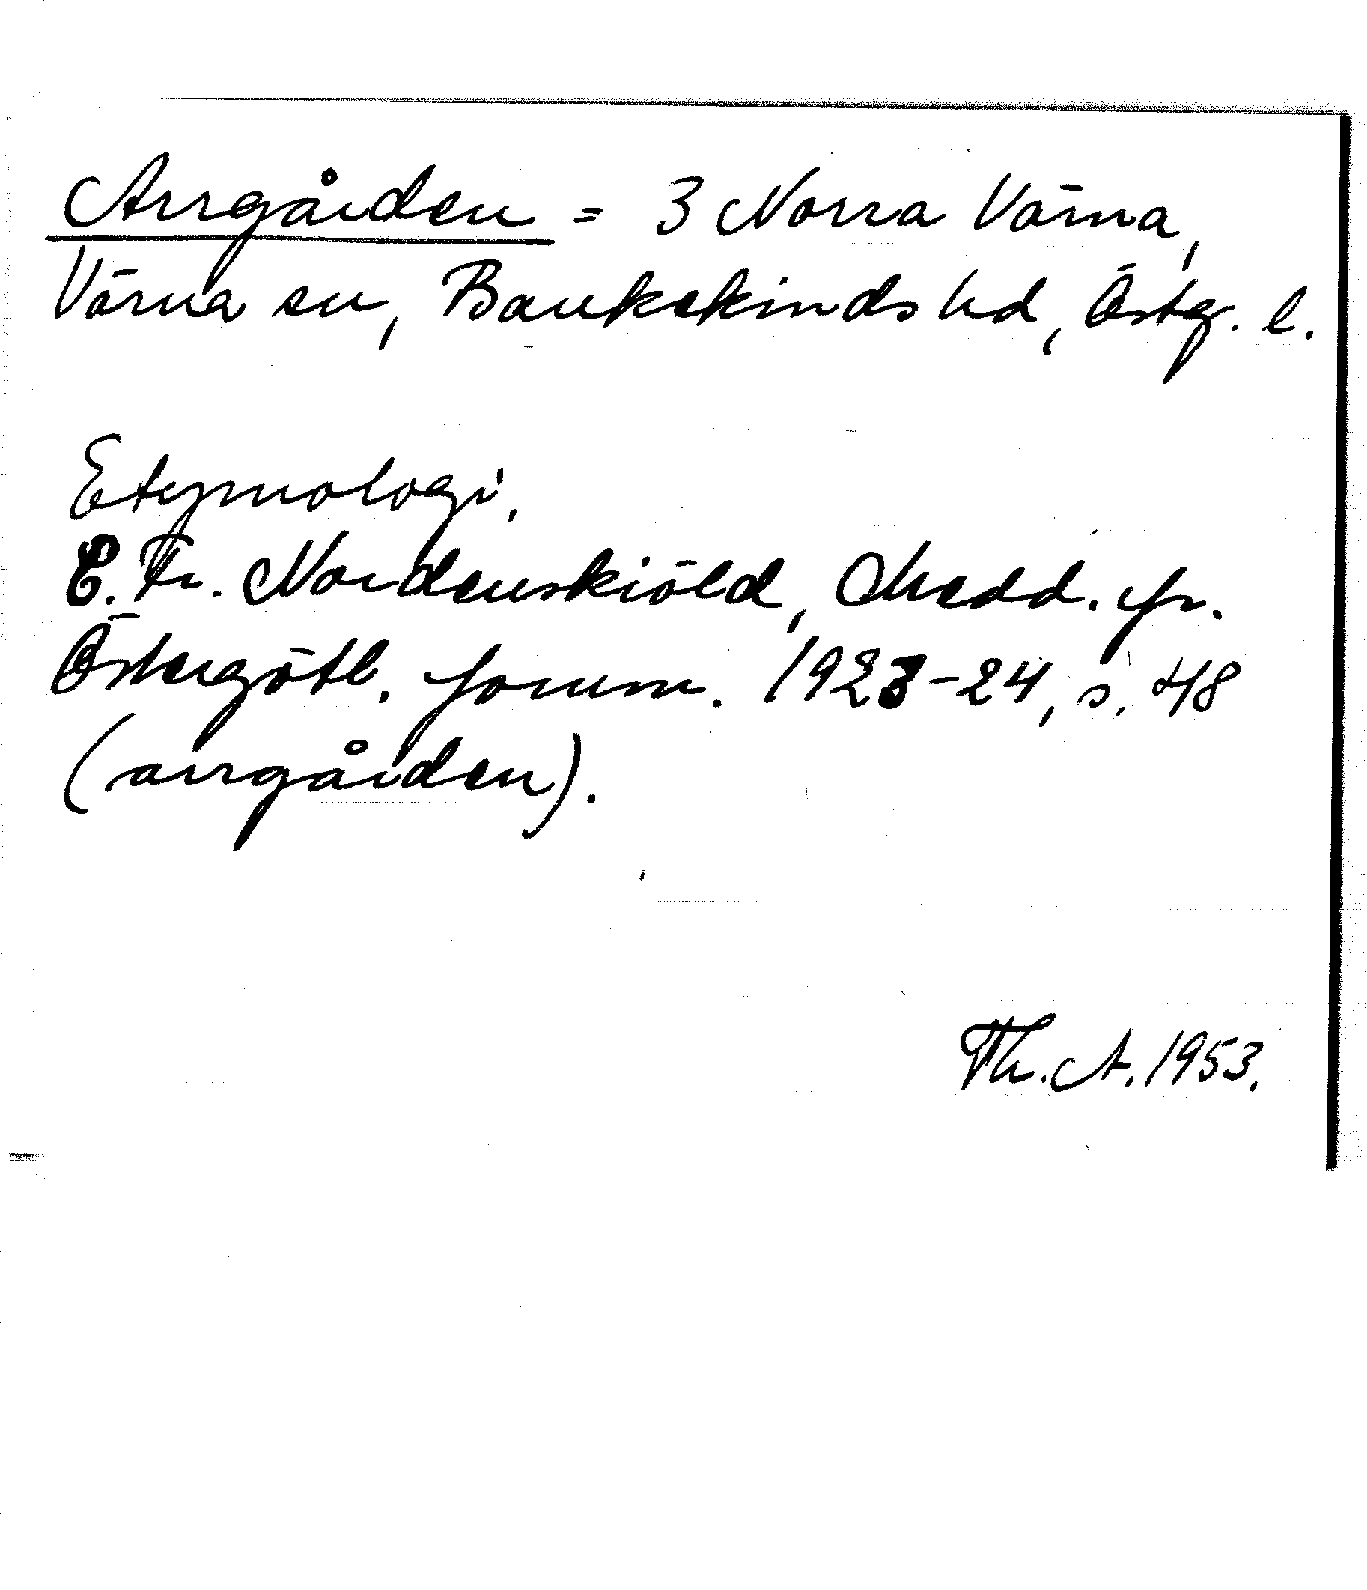 Arrgården = 3 Norra Värna,
Värna sn, Bankekinds hd, Östg. l.
Etymologi.
C. Fr. Nordenskiöld, Medd. fr.
Östergötl. fornm. 1923-24, s. 48
(arrgården).
Th. A. 1953.